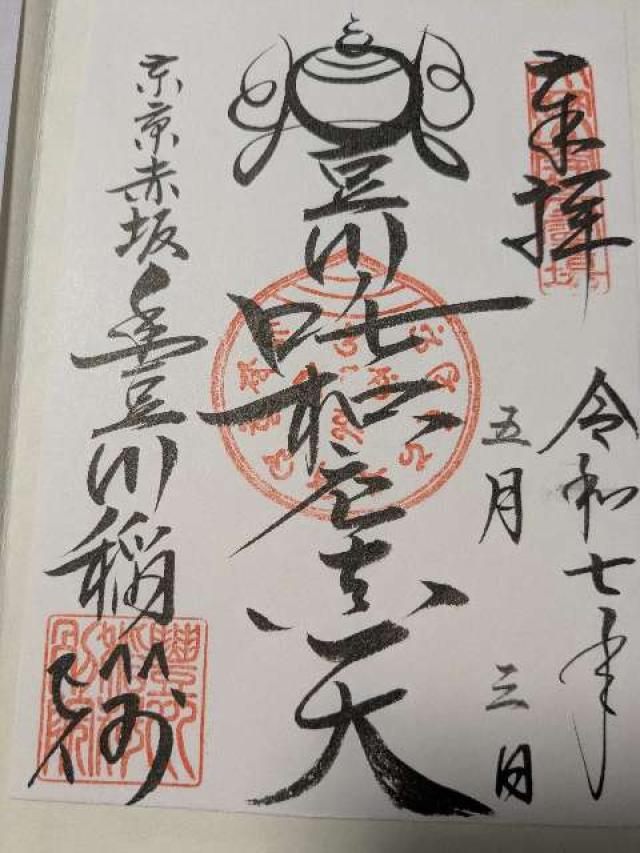 奉拝
令和七年
五月三日
豊川吒枳尼真天
東京赤坂豊川稲荷